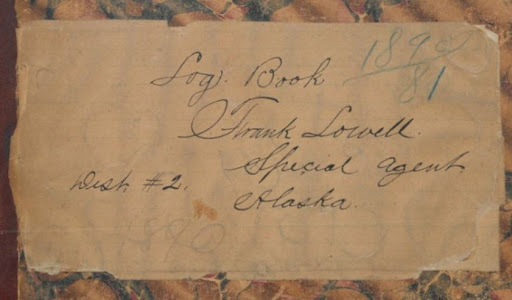 Log. Book
1890
81
Frank Lowell.
Special Agent
Dist. #2.
Alaska.
1890